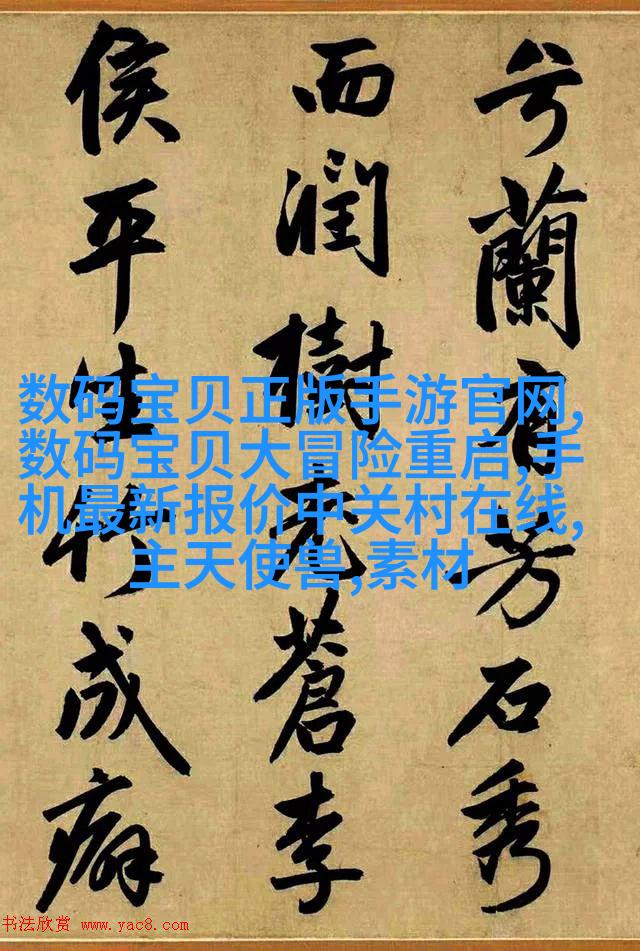 兮蘭有芳石秀
而潤樹老蒼李
侯平生竹成癖
数码宝贝正版手游官网,
数码宝贝大冒险重启,手
机最新报价中关村在线,
主天使兽,素材
书法欣赏 www.yac8.com